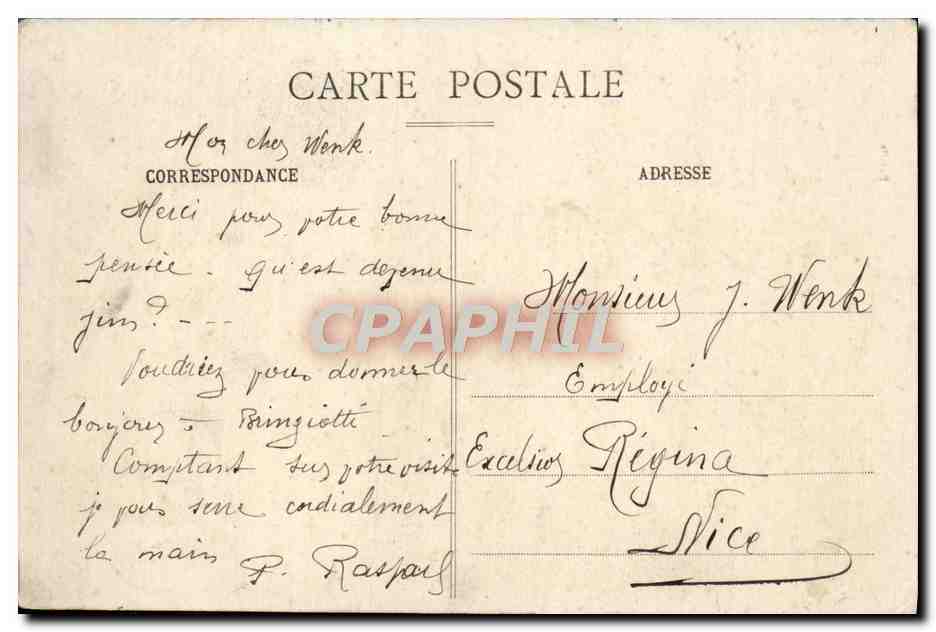 CARTE POSTALE
Mon cher Wenk.
CORRESPONDANCE
Merci pour votre bonne
pensée. Qu'est devenu
jim? - - -
Voudriez vous donner le
bonjour à Bringiotti
Comptant sur votre visite
je vous serre cordialement
la main
P. Raspail
ADRESSE
Monsieur J. Wenk
Employé
Excelsior Régina
Nice
CPAPHIL